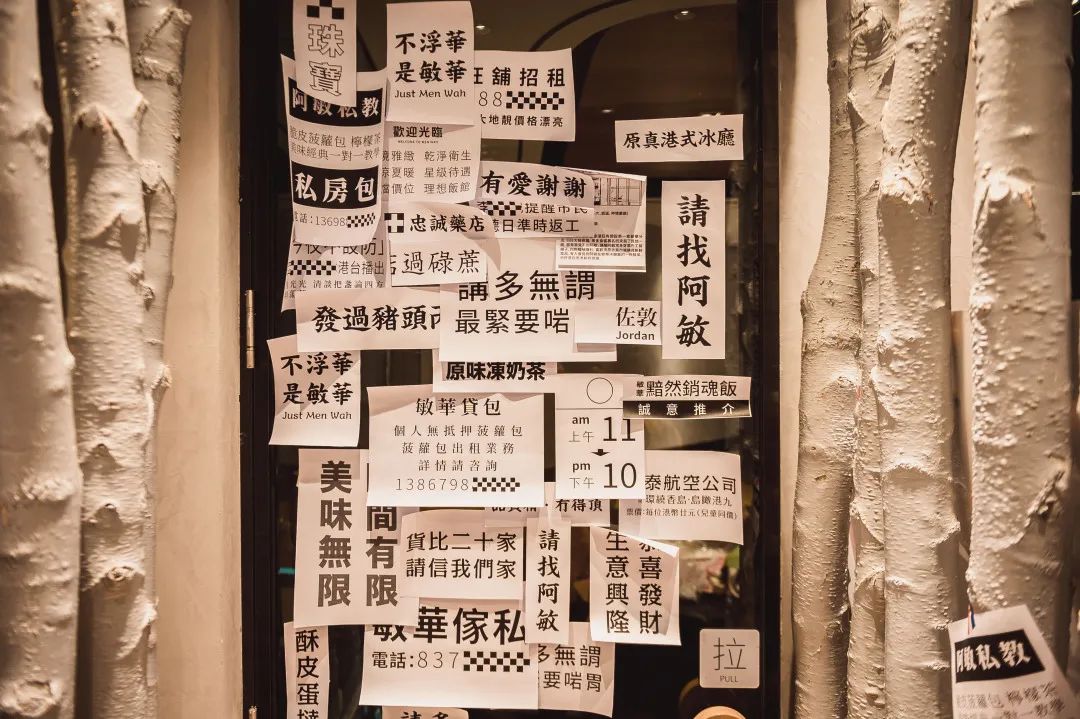 珠
寶
不浮華
是敏華
Just Men Wah
旺舖招租
88
大地靚價格漂亮
原真港式冰廳
阿敏私教
脆皮菠蘿包 檸檬茶
美味經典一對一教學
私房包
電話:13698
歡迎光臨
境雅緻 乾淨衛生
涼夏暖 星級待遇
當價位 理想飯館
有愛謝謝
提醒市民
德日準時返工
忠誠藥店
今夜不設防」
港台播出
光光 清談把盞論四方
店過碌蔗
請找阿敏
講多無謂
最緊要啱
發過豬頭
佐敦
Jordan
不浮華
是敏華
Just Men Wah
原味凍奶茶
敏華
黯然銷魂飯
誠意推介
敏華貸包
個人無抵押菠蘿包
菠蘿包出租業務
詳情請咨詢
1386798
am
上午 11
pm
下午 10
泰航空公司
環繞香島·島瞰港九
票價:每位港幣廿元(兒童同價)
美味無限
間有限
有得頂
貨比二十家
請信我們家
請找阿敏
恭喜發財
生意興隆
敏華傢私
電話:837
多無謂
要啱胃
酥皮蛋撻
拉
PULL
阿敏私教
脆皮菠蘿包 檸檬茶